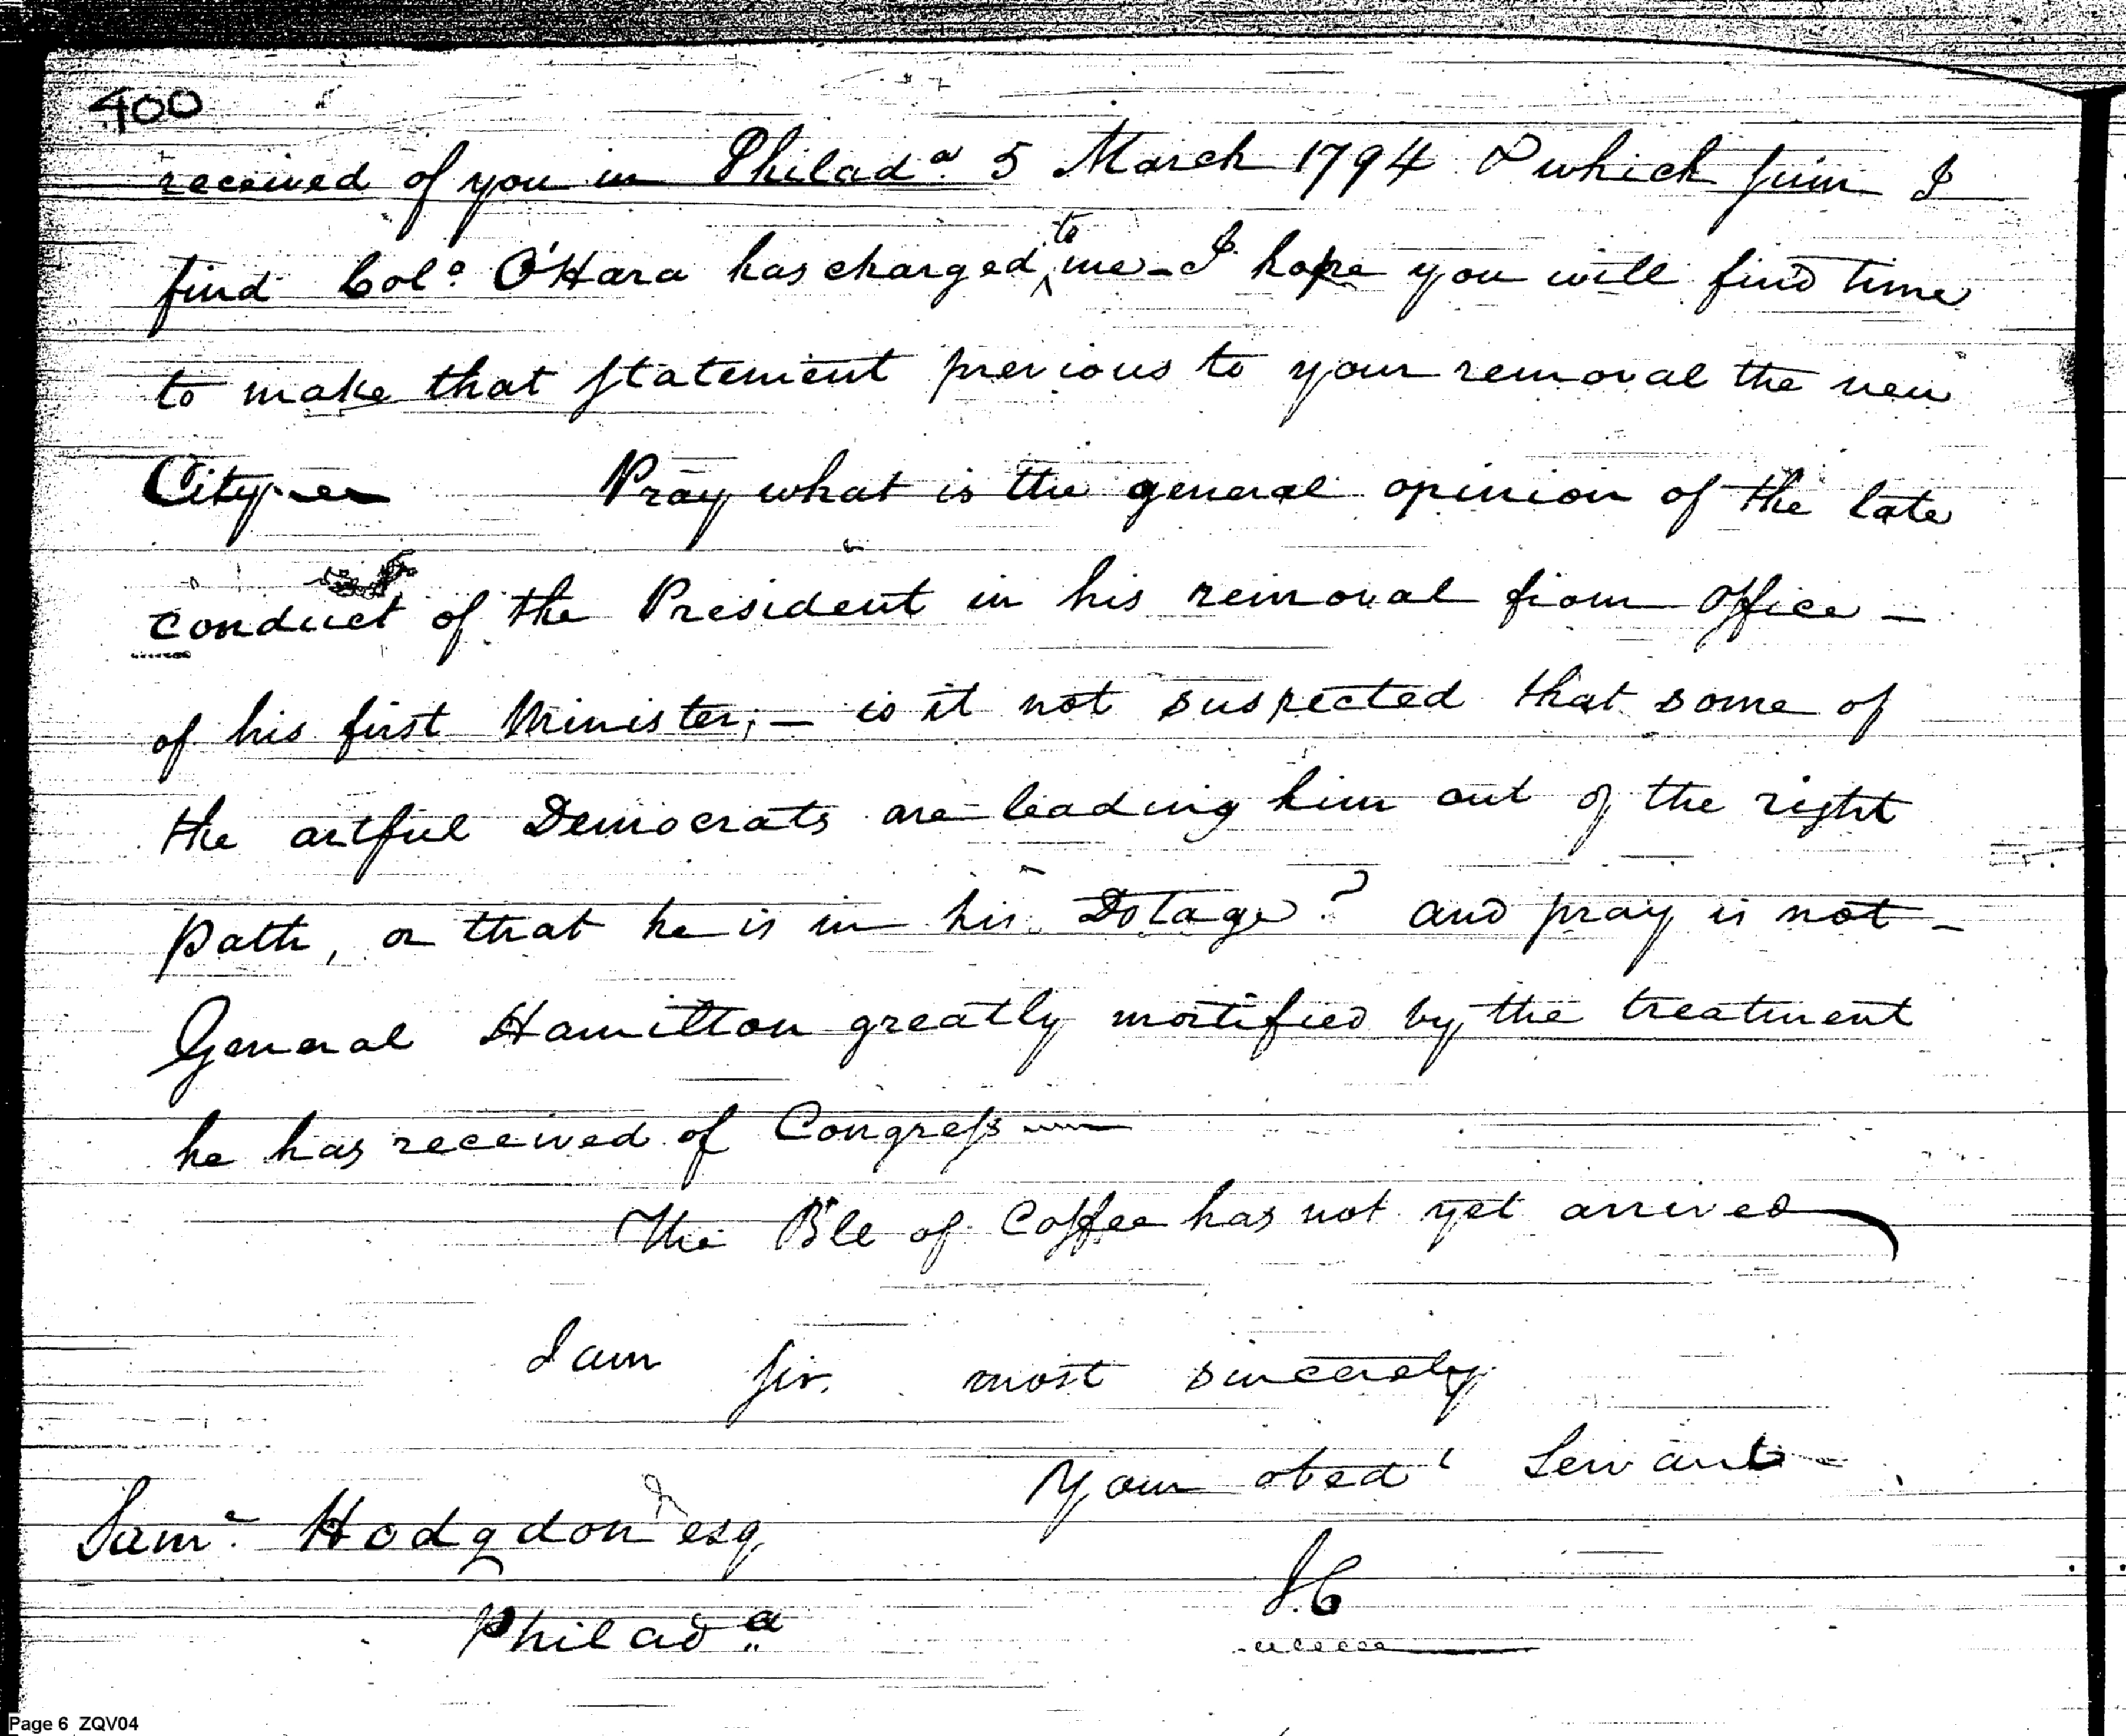 400
received of you in Philada. 5 March 1794 & which sum I
find Colo. O'Hara has charged to me - I hope you will find time
to make that statement previous to your removal the new
City
Pray what is the general opinion of the late
conduct of the President in his removal from office -
of his first Minister; - is it not suspected that some of
the artful Democrats are leading him out of the right
path, or that he is in his Dotage? and pray is not -
General Hamilton greatly mortified by the treatment
he has received of Congress
The Ble of Coffee has not yet arrived
I am Sir. most sincerely
Your obedt Servant
Saml. Hodgdon esq
Philada
I.C
Page 6 ZQV04